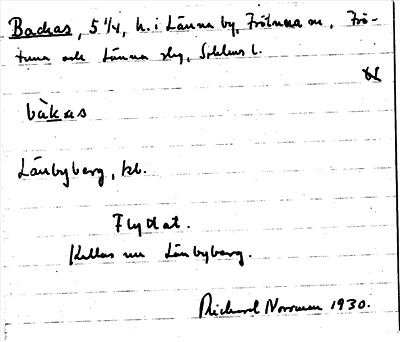 Backas, 5 1/4, h. i Länna by, Frötuna sn, Frö-
tuna och Länna skg, Sthlms l.
bàkas
Länbyberg, bb.
Flyttat.
Kallas nu Länbyberg.
Rickard Norrman 1930.